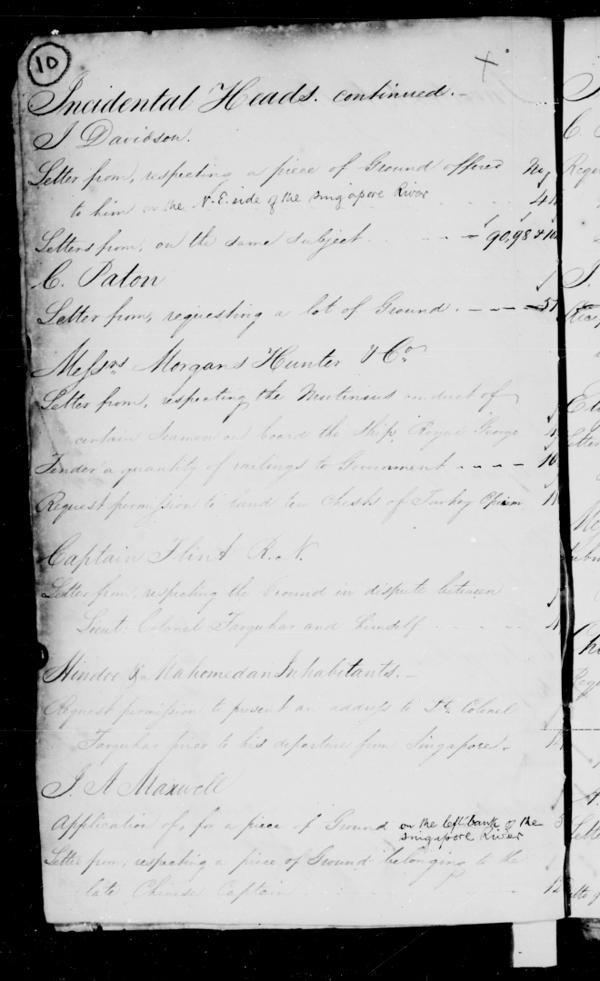 10
Incidental Heads. continued.
J Davidson.
Letter from, respecting a piece of Ground offered No
to him on the N.E. side of the Singapore River
Letters from, on the same subject 90, 98 &
C. Paton
Letter from, requesting a lot of Ground.
Messrs Morgans Hunter & Co.
Letter from, respecting the Mutinous conduct of
certain Seamen on board the Ship Royal George
Tender a quantity of railings to Government
Request permission to land ten Chests of Turkey Opium
Captain Flint R. N.
Letter from, respecting the Ground in dispute between
Lieut. Colonel Farquhar and himself
Hindoo & Mahomedan Inhabitants.
Request permission to present an address to Lt. Colonel
Farquhar prior to his departure from Singapore.
J. A Maxwell
Application of, for a piece of Ground on the left bank of the
Singapore River
Letter from, respecting a piece of Ground belonging to the
late Chinese Captain